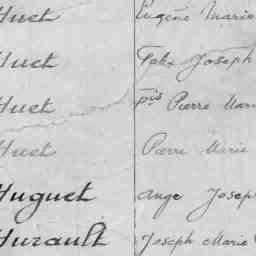 Huet Eugène Marie
Huet Felix Joseph
Huet Pierre Mari
Huet Pierre Marie
Huguet Ange Joseph
Hurault Joseph Marie